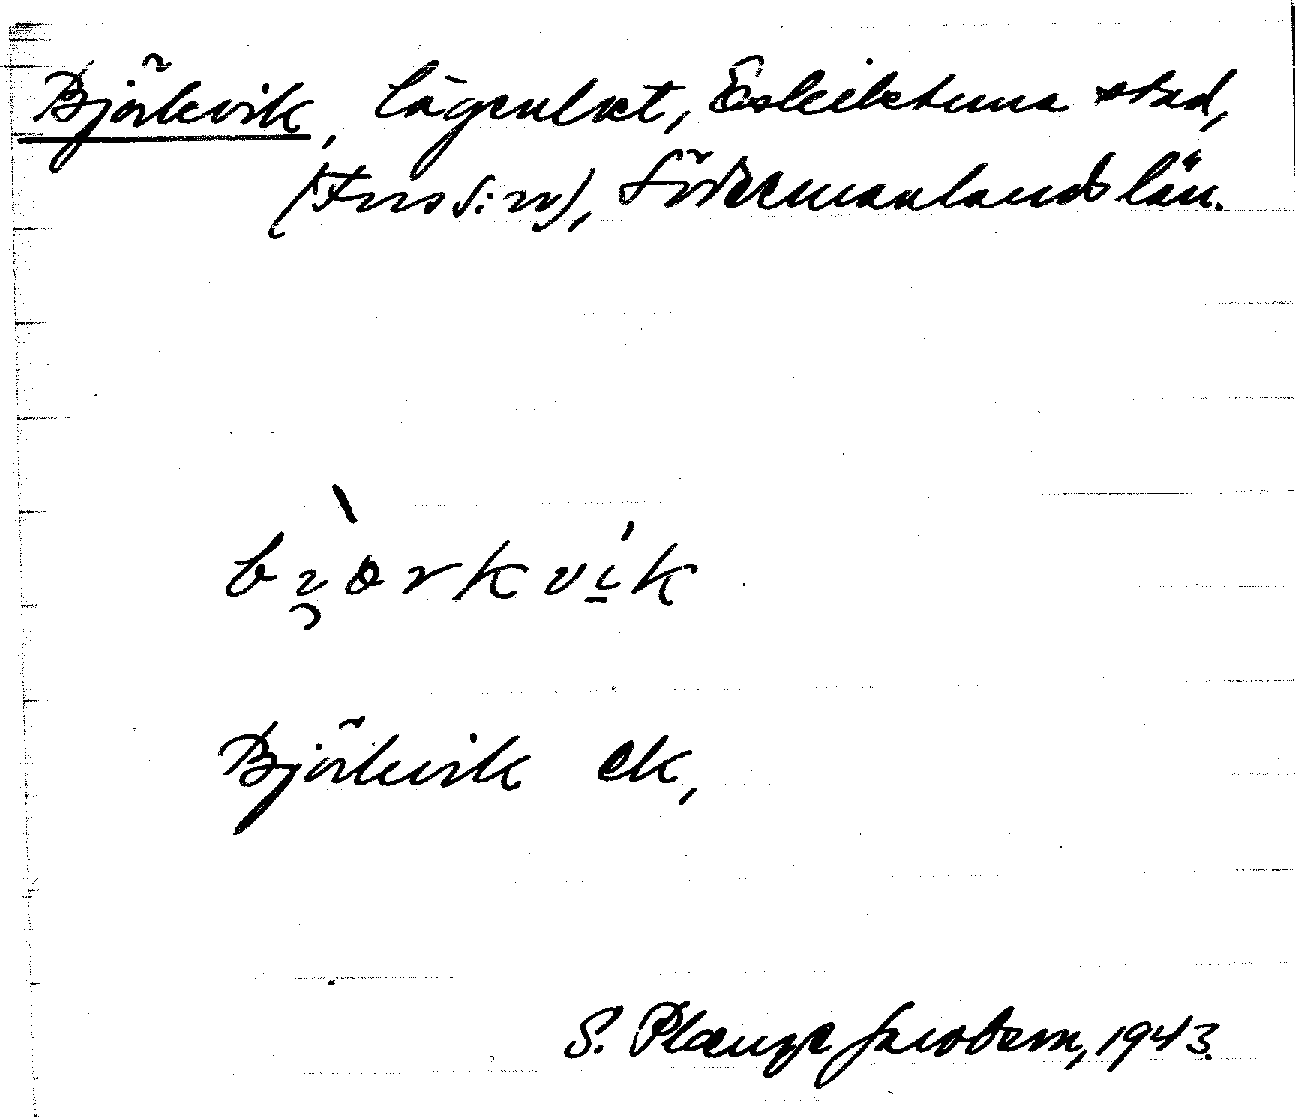 Björkvik, lägenhet, Eskilstuna stad,
(Fors s:n), Södermanlands län.
bjòrkvík
Björkvik ek,
S. Plænge Jacobson, 1943.